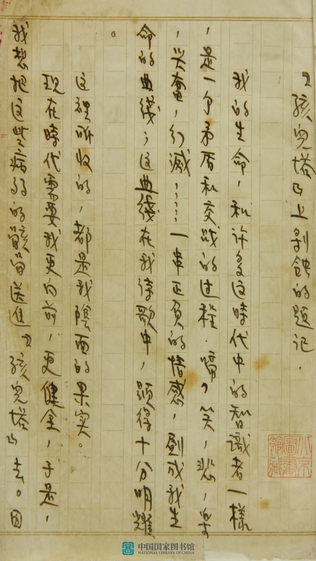 『孩儿塔』上剥蚀的题记.
我的生命，和许多这時代中的智識者一樣
，是一个矛盾和交战的过程，啼，笑，悲，乐
，兴奮，幻滅……一串正負的情感，劃成我生
命的曲线；这曲线在我诗歌中，显得十分明耀
。
这裡所收的，都是我陰面的果实。
现在時代需要我更向前，更健全，于是，
我想把这些病弱的骸骨送進『孩儿塔』去。因
中国国家图书馆
NATIONAL LIBRARY OF CHINA